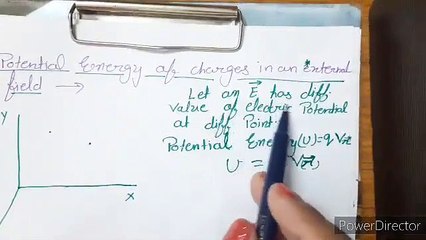 Potential Energy of charges in an External
field →
Let an E⃗ has diff.
value of electric Potential
at diff Point.
Potential Energy(U)=q V
U =
y
x
PowerDirector